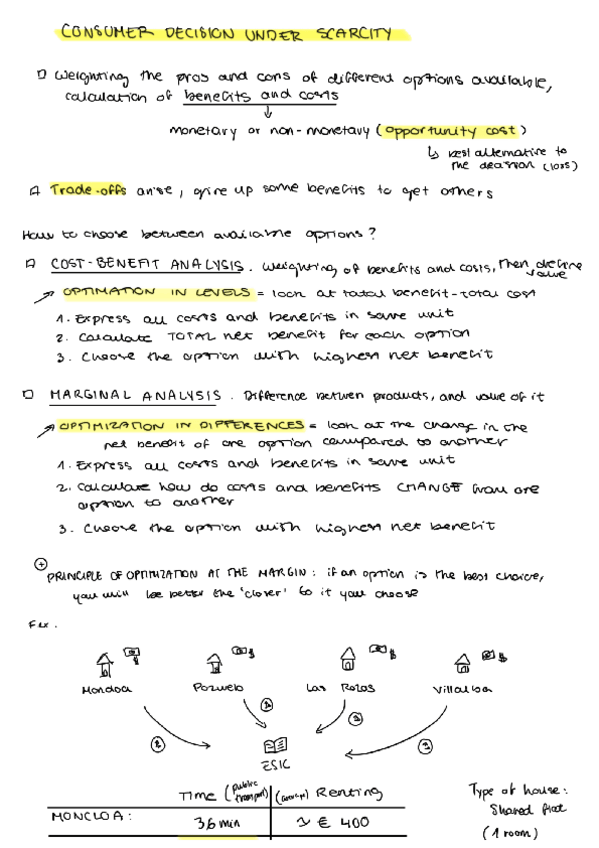 CONSUMER DECISION UNDER SCARCITY
Weighting the pros and cons of different options available,
calculation of benefits and costs
monetary or non-monetary (opportunity cost)
best alternative to
the decision (loss)
Trade-offs arise, give up some benefits to get others
How to choose between available options?
COST-BENEFIT ANALYSIS. Weighting of benefits and costs, then define
value
OPTIMATION IN LEVELS = look at total benefit-total cost
1. Express all costs and benefits in same unit
2. Calculate TOTAL net benefit for each option
3. Choose the option with highest net benefit
MARGINAL ANALYSIS. Difference between products, and value of it
OPTIMIZATION IN DIFFERENCES = look at the change in the
net benefit of one option compared to another
1. Express all costs and benefits in same unit
2. Calculate how do costs and benefits CHANGE from one
option to another
3. Choose the option with highest net benefit
+
PRINCIPLE OF OPTIMIZATION AT THE MARGIN: if an option is the best choice,
you will be better the 'closer' to it you choose
Ex.
$ $ $ $
Moncloa Pozuelo Las Rozas Villalba
ESIC
Time (public transport) Renting
MONCLOA: 36 min ~ € 400
Type of house:
Shared flat
(1 room)